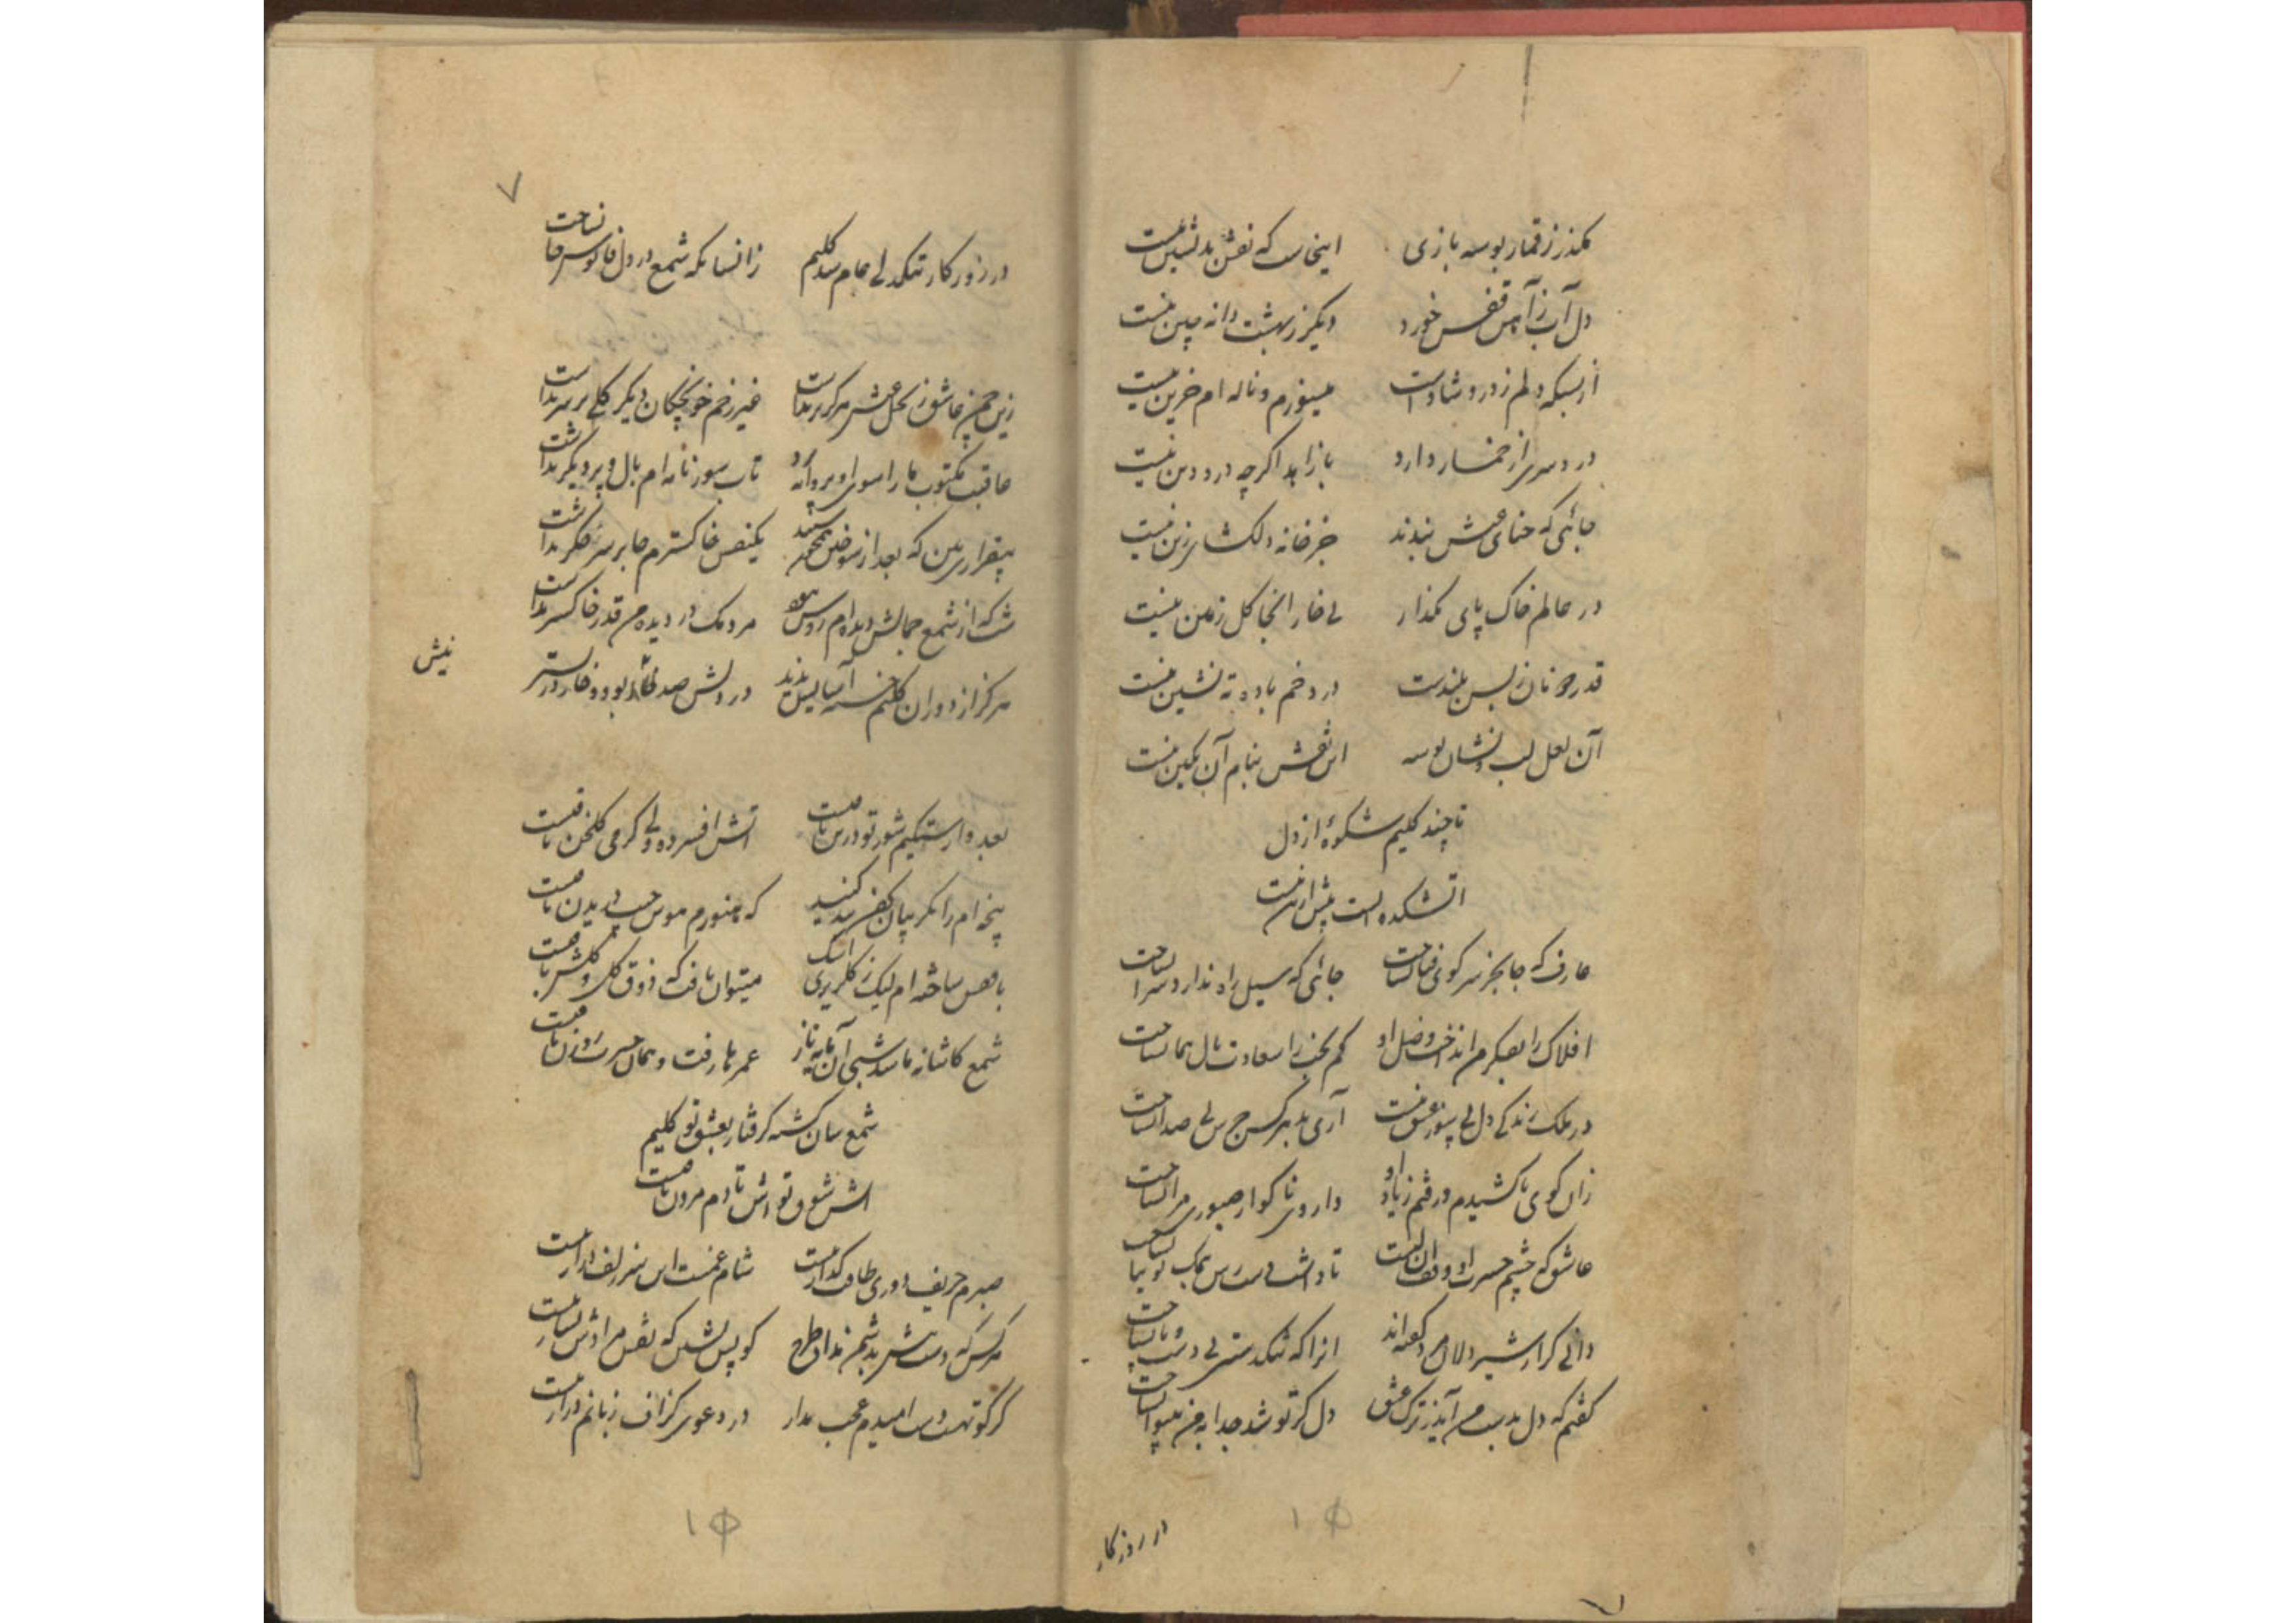 بگذر ز قمار بوسه بازی اینجاست که نقش بدنشین نیست
دل آب ز آهن قفس خورد دیگر ز بهشت دانه چین نیست
از بسکه دلم ز درد شادست میسوزم و ناله ام حزین نیست
دردسری از خمار دارد با زاهد اگرچه درد دین نیست
جائی که حنای عیش بندند جز خانه دلکشای زین نیست
در عالم خاک پای مگذار بی خار اینجا گل زمین نیست
قدر دونان ز بس بلندست در خم باده ته نشین نیست
آن لعل لب و نشان بوسه این نقش بنام آن نگین نیست
تا چند کلیم شکوهٔ از دل
آتشکده است بیش ازین نیست
عارف که جا بجز سر کوی فنا نساخت جائی که سیل راه ندارد سرا نساخت
افلاک را بفکر من انداخت فضل او کم بخت را سعادت بال هما نساخت
در ملک زندگی دل بی سوز عشق نیست آری بدهر کس جرس بی صدا نساخت
زان کوی پا کشیدم و رفتم ز یاد او داروی ناگوار صبوری مرا نساخت
عاشق که چشم حسرت او وقف آن لبست تا داشت دسترس نمک توتیا نساخت
دانی کرا رسد دلان گفته اند آنرا که تنگدستی بی دست و پا نساخت
گفتم که دل بدست من آید ز ترک عشق دل کز تو شد جدا به من بینوا نساخت
در روزگار
۷
در روزگار تنگدلی جام شد کلیم زانسانکه شمع در دل فانوس جا نساخت
زین چمن عاشق ز نخل عیش هرگز بر نداشت غیر زخم خونچکان دیگر گلی بر سر نداشت
عاقبت مکتوب ما را سوی او پروانه برد تاب سوز نامه ام بال و پر دیگر نداشت
بیقراری بین که بعد از سوختن همچون سپند یکنفس خاکسترم جا بر سر مجمر نداشت
شب که از شمع جمالش دیده ام روشن نبود مردمک در دیده من قدر خاکستر نداشت
هرگز از دوران کلیم خسته آسایش ندید در دلش صد خار بود و خار در بستر
نیش
بعد وارستگیم شور تو در سر باقیست آتش افسرده ولی گرمی گلخن باقیست
پنجه ام را بگریبان کفن بند کنید که هنوزم هوس جیب دریدن باقیست
با قفس ساخته ام لیک ز گلریزی اشک میتوان یافت که ذوق گل و گلشن باقیست
شمع کاشانه ما شد شبی آن مایه ناز عمرها رفت و همان حسرت روزن باقیست
شمع سان گشته گرفتار بعشق تو کلیم
آتش شوق تواش تا دم مردن باقیست
صبرم حریف دوری طاقت گداز نیست شام غمست این سر زلف دراز نیست
هرکس که دست شست بدشمن نداد طرح گو پس نشین که نقش مرادش نساز نیست
گر کوتهست دست امیدم عجب مدار در دعوی گزاف زبانم دراز نیست
۱۵
۱۵
۷